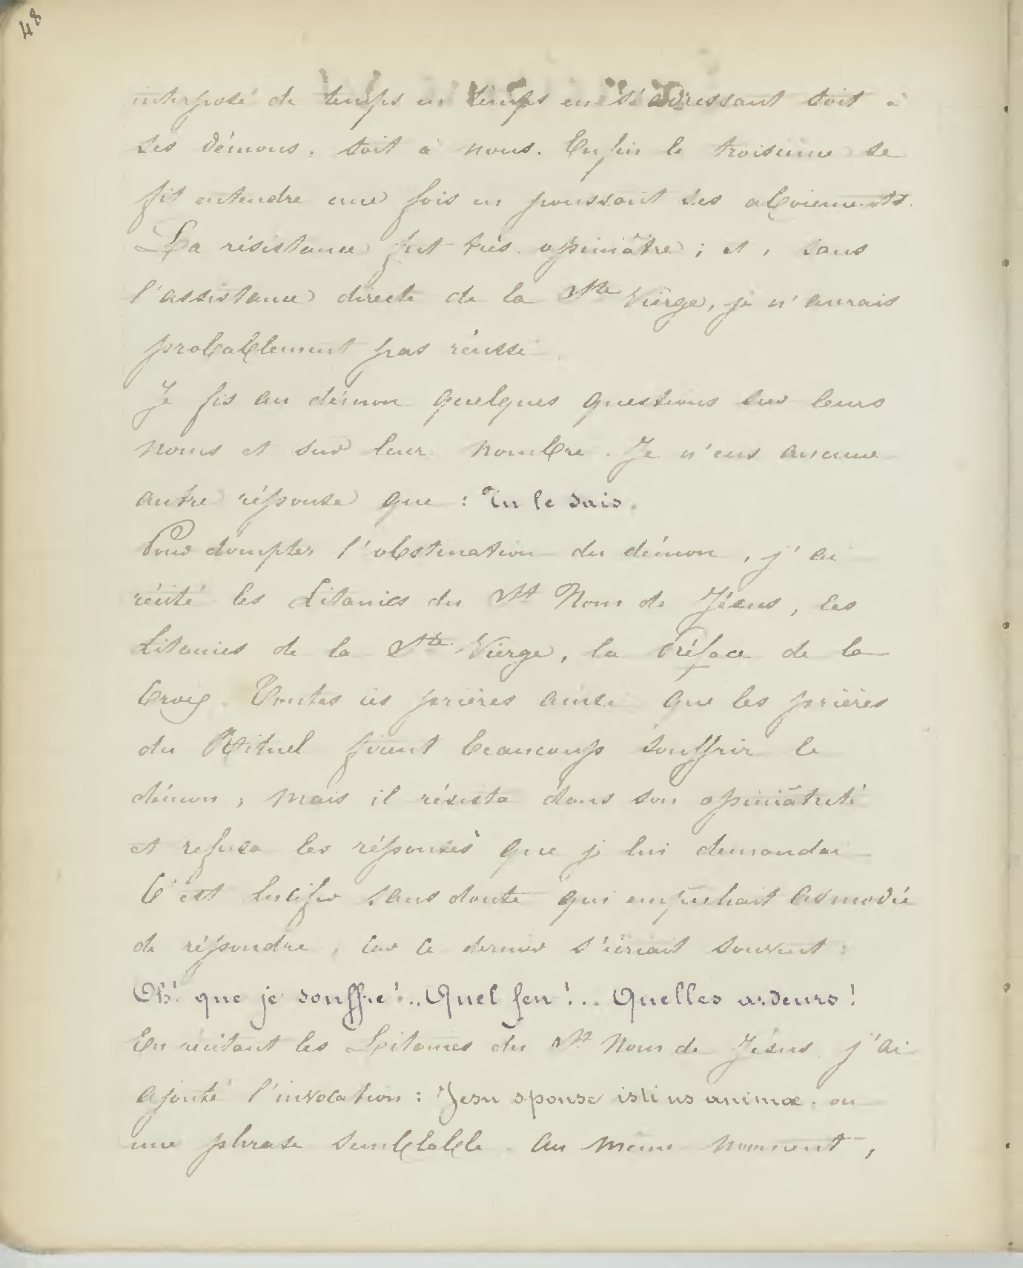 48
interposé de temps en temps en s'adressant soit à
ses démons, soit à nous. Enfin le troisième se
fit entendre une fois en poussant des aboiements.
La résistance fut très opiniâtre ; et, sans
l'assistance directe de la Ste Vierge, je n'aurais
probablement pas réussi.
Je fis au démon quelques questions sur leurs
noms et sur leur nombre. Je n'eus aucune
autre réponse que : Tu le sais.
Pour dompter l'obstination du démon, j'ai
récité les Litanies du St Nom de Jésus, les
Litanies de la Ste Vierge, la Préface de la
Croix. Toutes ces prières ainsi que les prières
du Rituel firent beaucoup souffrir le
démon ; mais il résista dans son opiniâtreté
et refusa les réponses que je lui demandai
C'est Lucifer sans doute qui empêchait Asmodée
de répondre, car ce dernier s'écriait souvent :
Oh! que je souffre!.. Quel feu!... Quelles ardeurs!
En récitant les Litanies du St Nom de Jésus j'ai
ajouté l'invocation : Jesu sponse istius animæ. ou
une phrase semblable. Au même moment,